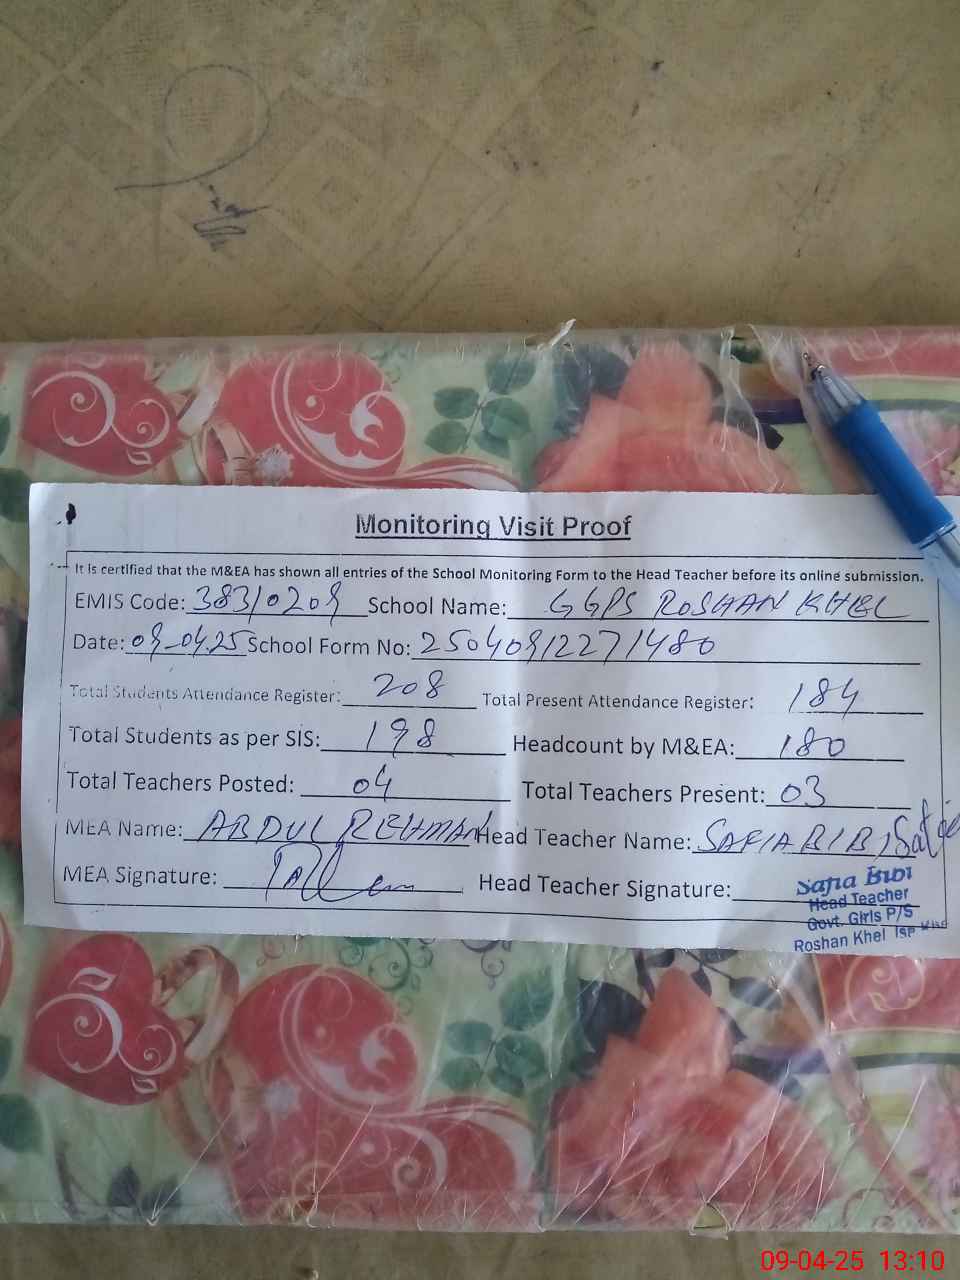 Monitoring Visit Proof
It is certified that the M&EA has shown all entries of the School Monitoring Form to the Head Teacher before its online submission.
EMIS Code: 38310209 School Name: GGPS ROSHAN KHEL
Date: 09-04.25 School Form No: 25040912271480
Total Students Attendance Register: 208 Total Present Attendance Register: 184
Total Students as per SIS: 198 Headcount by M&EA: 180
Total Teachers Posted: 04 Total Teachers Present: 03
MEA Name: ABDUL REHMAN Head Teacher Name: SAFIA BIBI
MEA Signature: Head Teacher Signature:
Safia Bibi
Head Teacher
Govt. Girls P/S
Roshan Khel
09-04-25 13:10